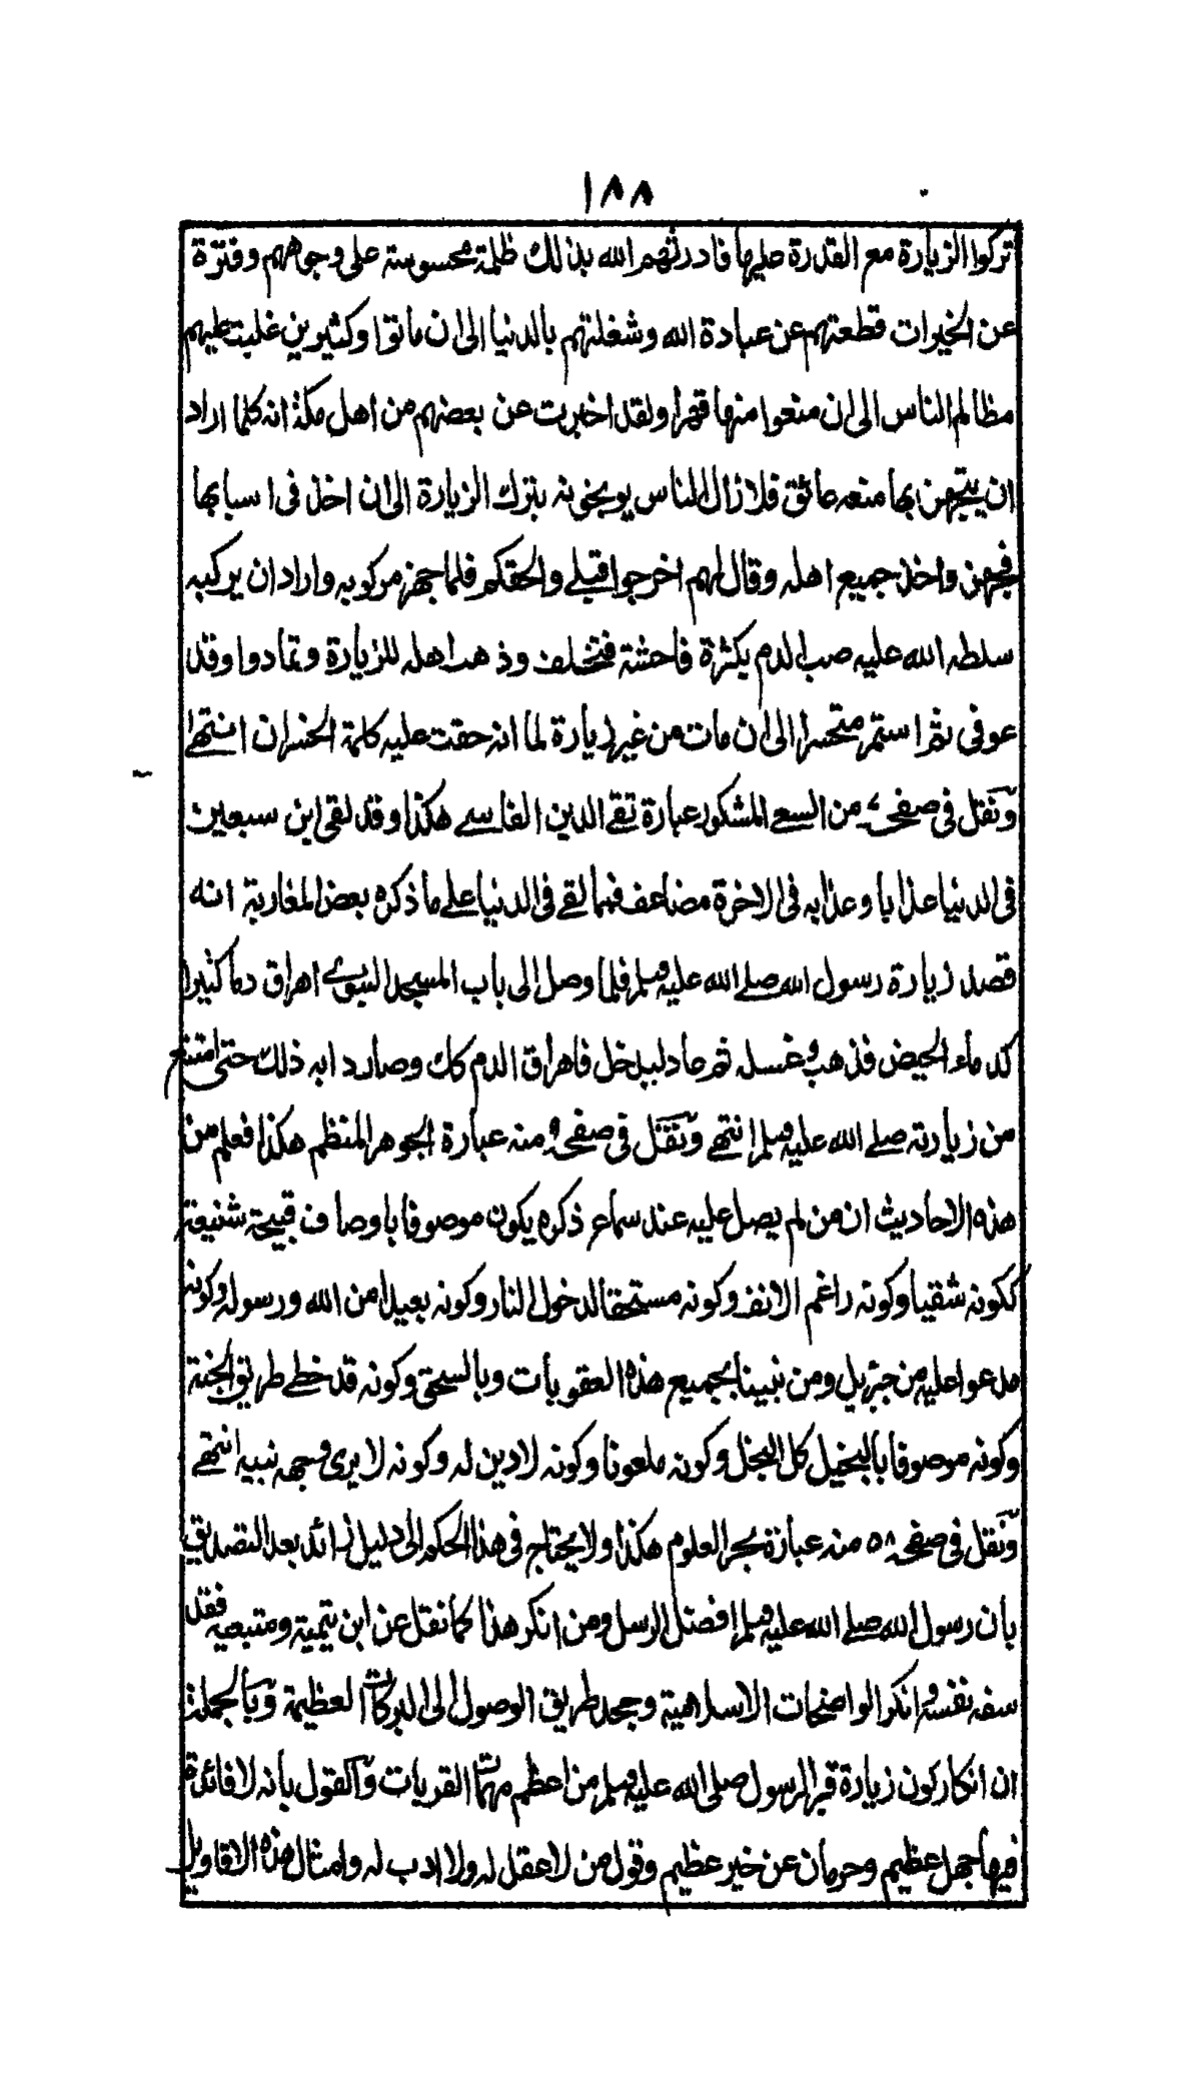 ١٨٨
تركوا الزيارة مع القدرة عليها فاورثهم الله بذلك ظلمة محسوسة على وجوههم وفترة
عن الخيرات قطعتهم عن عبادة الله وشغلتهم بالدنيا الى ان ماتوا وكثيرين غلبت عليهم
مظالم الناس الى ان منعوا منها قهرا ولقد اخبرت عن بعضهم من اهل مكة انه كلما اراد
ان يتجهز بها منعه عائق فلا زال الناس يوبخونه بترك الزيارة الى ان اخذ فى اسبابها
فجهز واخذ جميع اهله وقال لهم اخرجوا قبلے والحقكم فلما جهز مركوبه واراد ان يركبه
سلطه الله عليه صب الدم بكثرة فاحشة فتخلف وذهب اهله للزيارة وتمادوا وقد
عوفى ثم استمر متحسرا الى ان مات من غير زيارة لما انه حقت عليه كلمة الخسران انتهے
ونقل فى صفحه ٧ من السعے المشكور عبارة تقے الدين الفاسے هكذا وقد لقى ابن سبعين
فى الدنيا عذابا وعذابه فى الاخرة مضاعف فمما لقے فى الدنيا علے ما ذكره بعض المغاربة انه
قصد زيارة رسول الله صلے الله عليه وسلم فلما وصل الى باب المسجد النبوے اهراق دما كثيرا
كدماء الحيض فذهب وغسله ثم عاد ليدخل فاهراق الدم كك وصار دابه ذلك حتى امتنع
من زيارته صلے الله عليه وسلم انتهے ونقل فى صفحه منه عبارة الجوهر المنظم هكذا فعلم من
هذه الاحاديث ان من لم يصل عليه عند سماع ذكره يكون موصوفا باوصاف قبيحة شنيعة
ككونه شقيا وكونه راغم الانف وكونه مستحقا لدخول النار وكونه بعيدا من الله ورسوله وكونه
مدعوا عليه من جبرئيل ومن نبينا بجميع هذه العقوبات وبالسحق وكونه قد خطے طريق الجنة
وكونه موصوفا بالبخيل كل البخل وكونه ملعونا وكونه لا دين له وكونه لا يرى وجه نبيه انتهے
ونقل فى صفحه ٥٨ منه عبارة بحر العلوم هكذا ولا يحتاج فى هذا الحكم الى دليل زائد بعد التصديق
بان رسول الله صلے الله عليه وسلم افضل الرسل ومن انكر هذا كما نقل عن ابن تيمية ومتبعيه فقد
سفه نفسه وانكر الواضحات الاسلامية وجحد طريق الوصول الى البركات العظيمة وبالجملة
ان انكار كون زيارة قبر الرسول صلى الله عليه وسلم من اعظم مهمات القربات والقول بانه لا فائدة
فيها جهل عظيم وحرمان عن خير عظيم وقول من لا عقل له ولا ادب له وامثال هذه الاقاويل